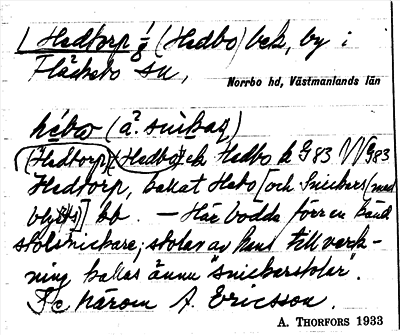 Hedtorp 1/8 (Hedbo) bek, by i
Fläckebo sn,
Norrbo hd, Västmanlands län
hébω (ä. snikaṛ)
(Hedtorp) (Hedbo) ek Hedbo k G 83 G 83
Hedtorp, kallat Hebo [och Snickars (med
] bb. — Här bodde förr en känd
stolsnickare; stolar av hans tillverk-
ning kallas ännu "snickarstolar".
A. Ericsson.
A. THORFORS 1933